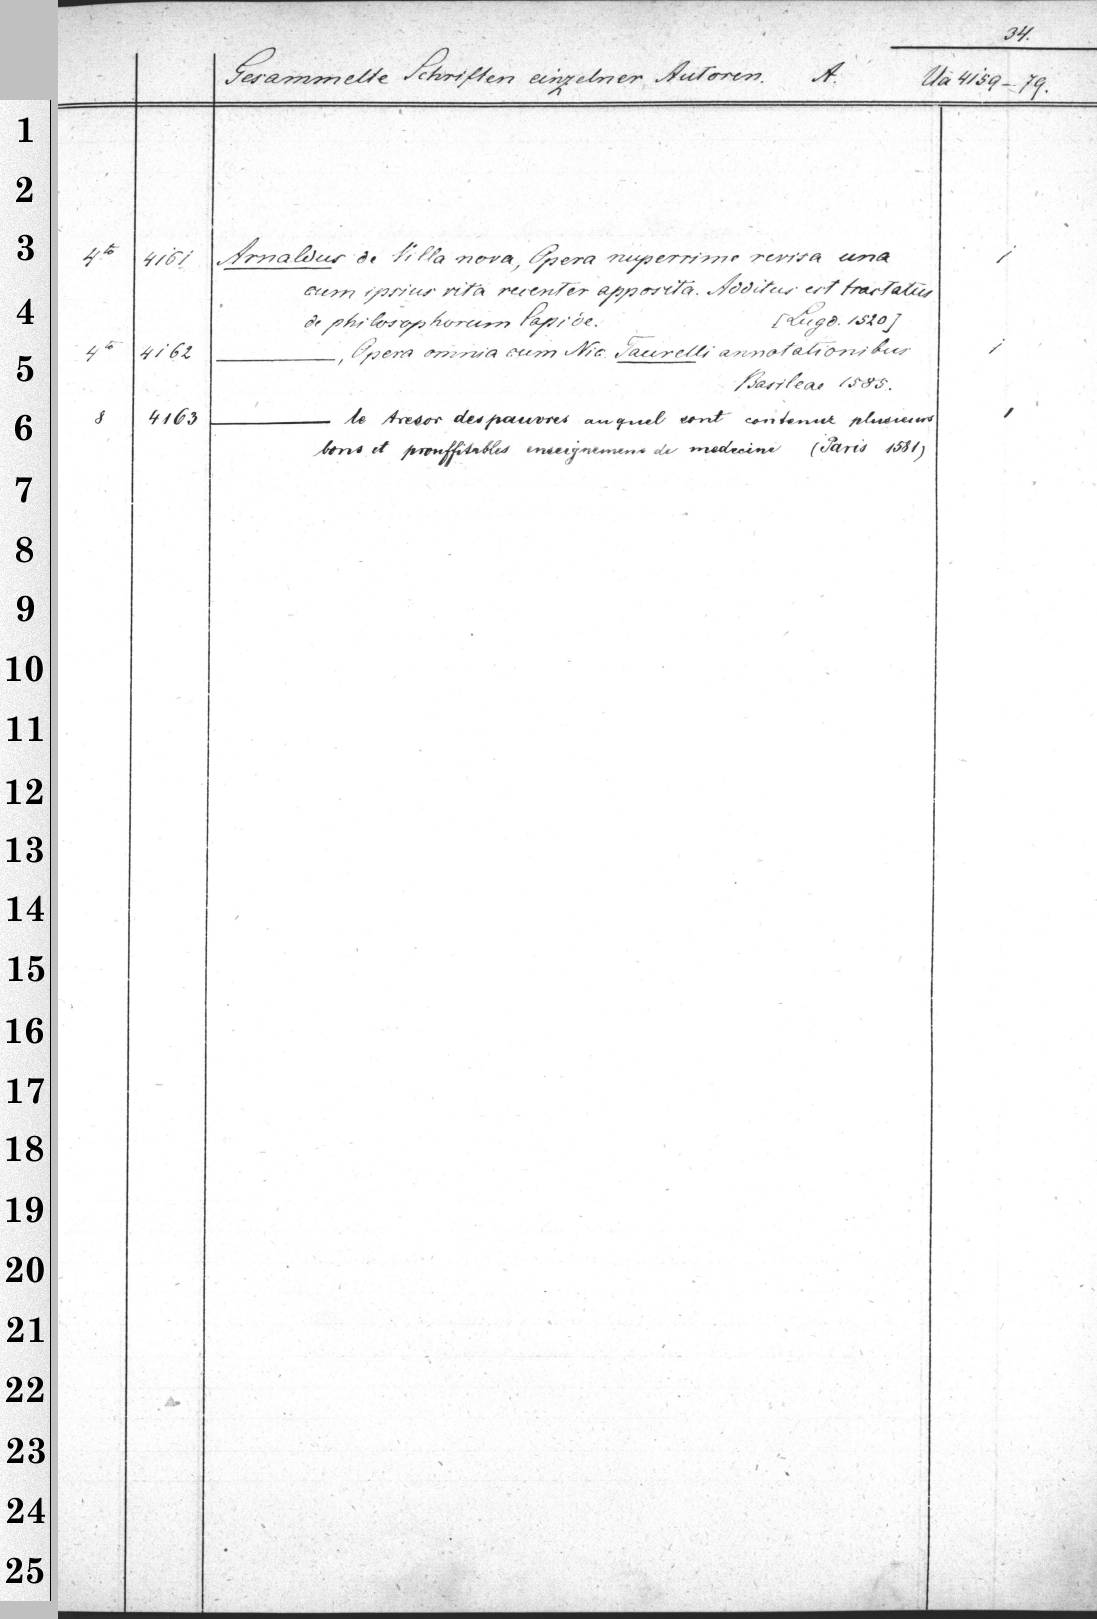 34.
Gesammelte Schriften einzelner Autoren. A. Ua 4159-79.
1
2
3
4to 4161 Arnaldus de Villa nova, Opera nuperrime revisa una 1
cum ipsius vita recenter apposita. Additus est tractatus
4
de philosophorum lapide. [Lugd. 1520]
4to 4162 ———, Opera omnia cum Nic. Taurelli annotationibus 1
5
Basileae 1585.
6
8 4163 ——— le tresor des pauvres auquel sont contenuz plusieurs 1
bons et prouffitables enseignemens de medecine (Paris 1581)
7
8
9
10
11
12
13
14
15
16
17
18
19
20
21
22
23
24
25